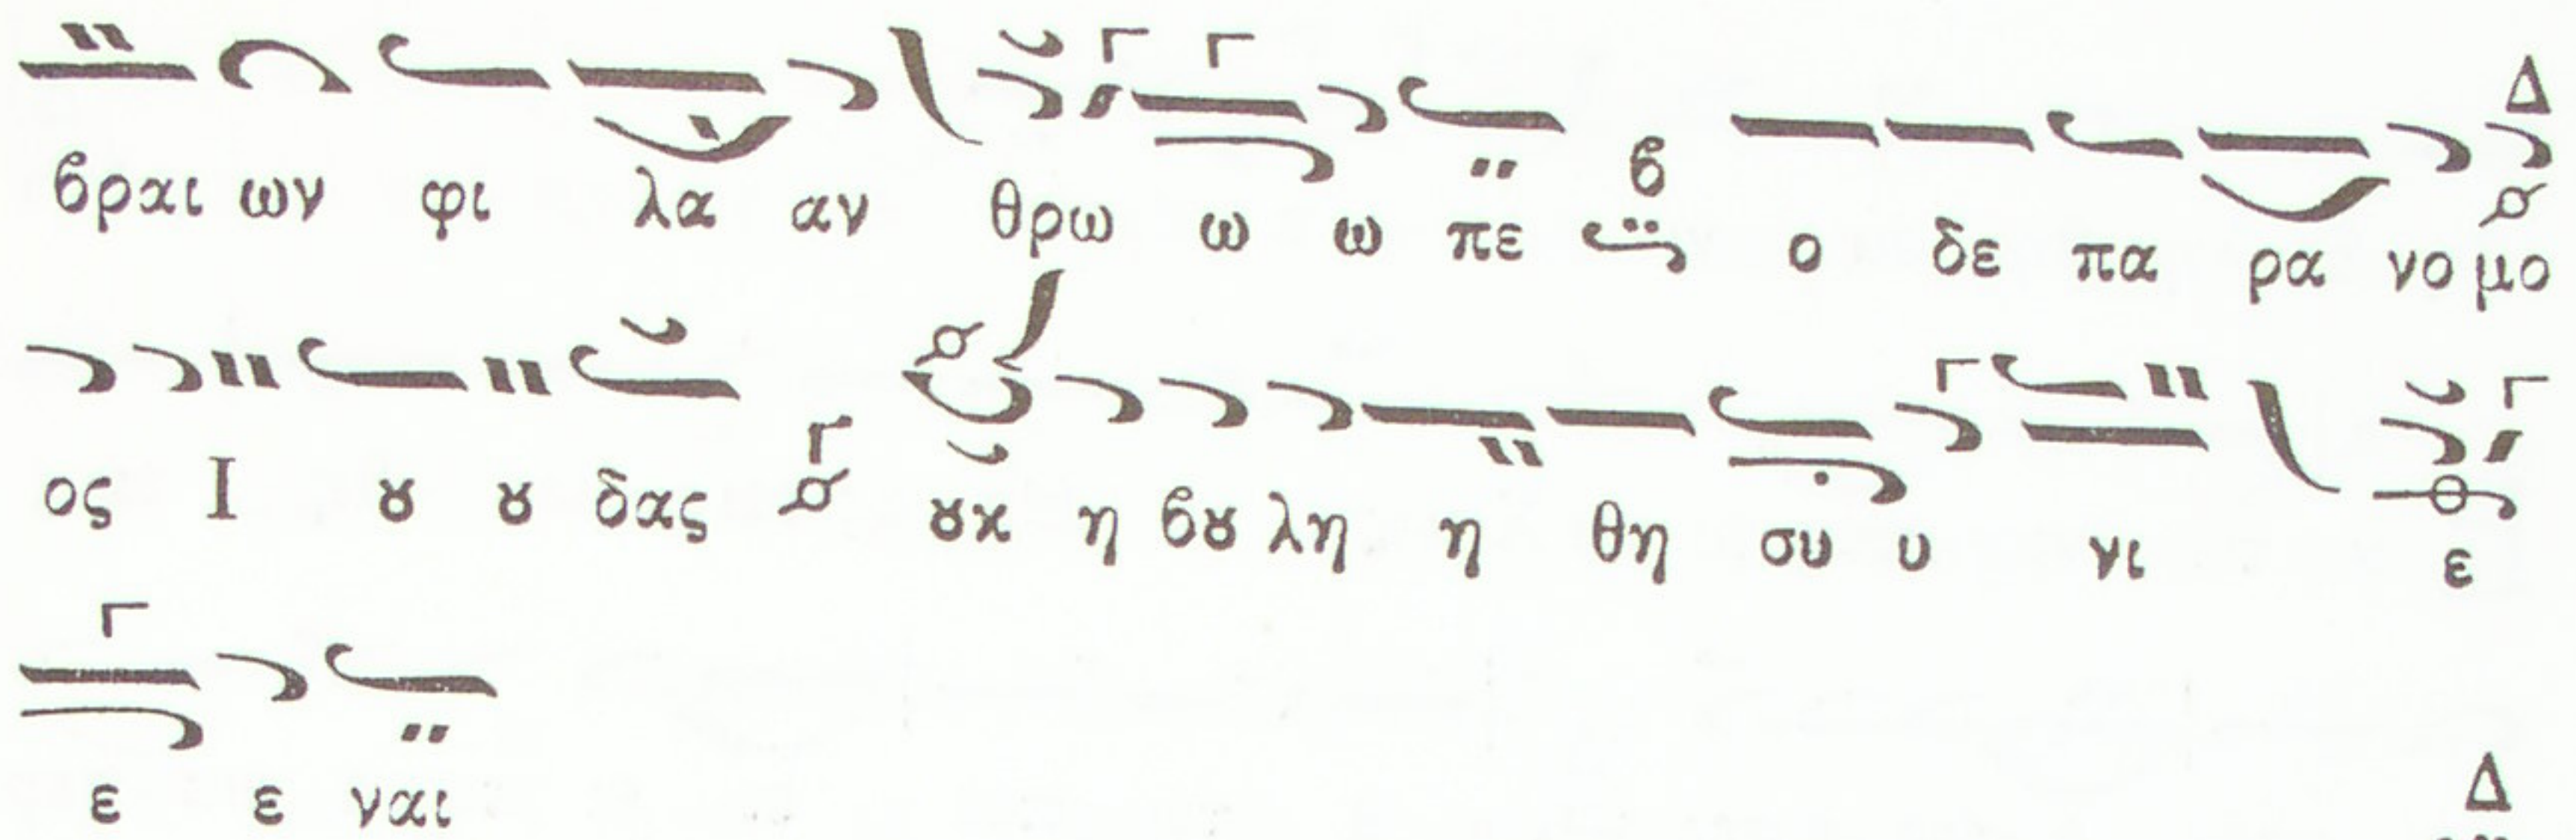 βραι ων φι λα αν θρω ω ω πε β ο δε πα ρα νο μο Δ
ος Ι ȣ ȣ δας Γ ȣκ η βȣ λη η θη συ υ νι ε
ε ε ναι Δ